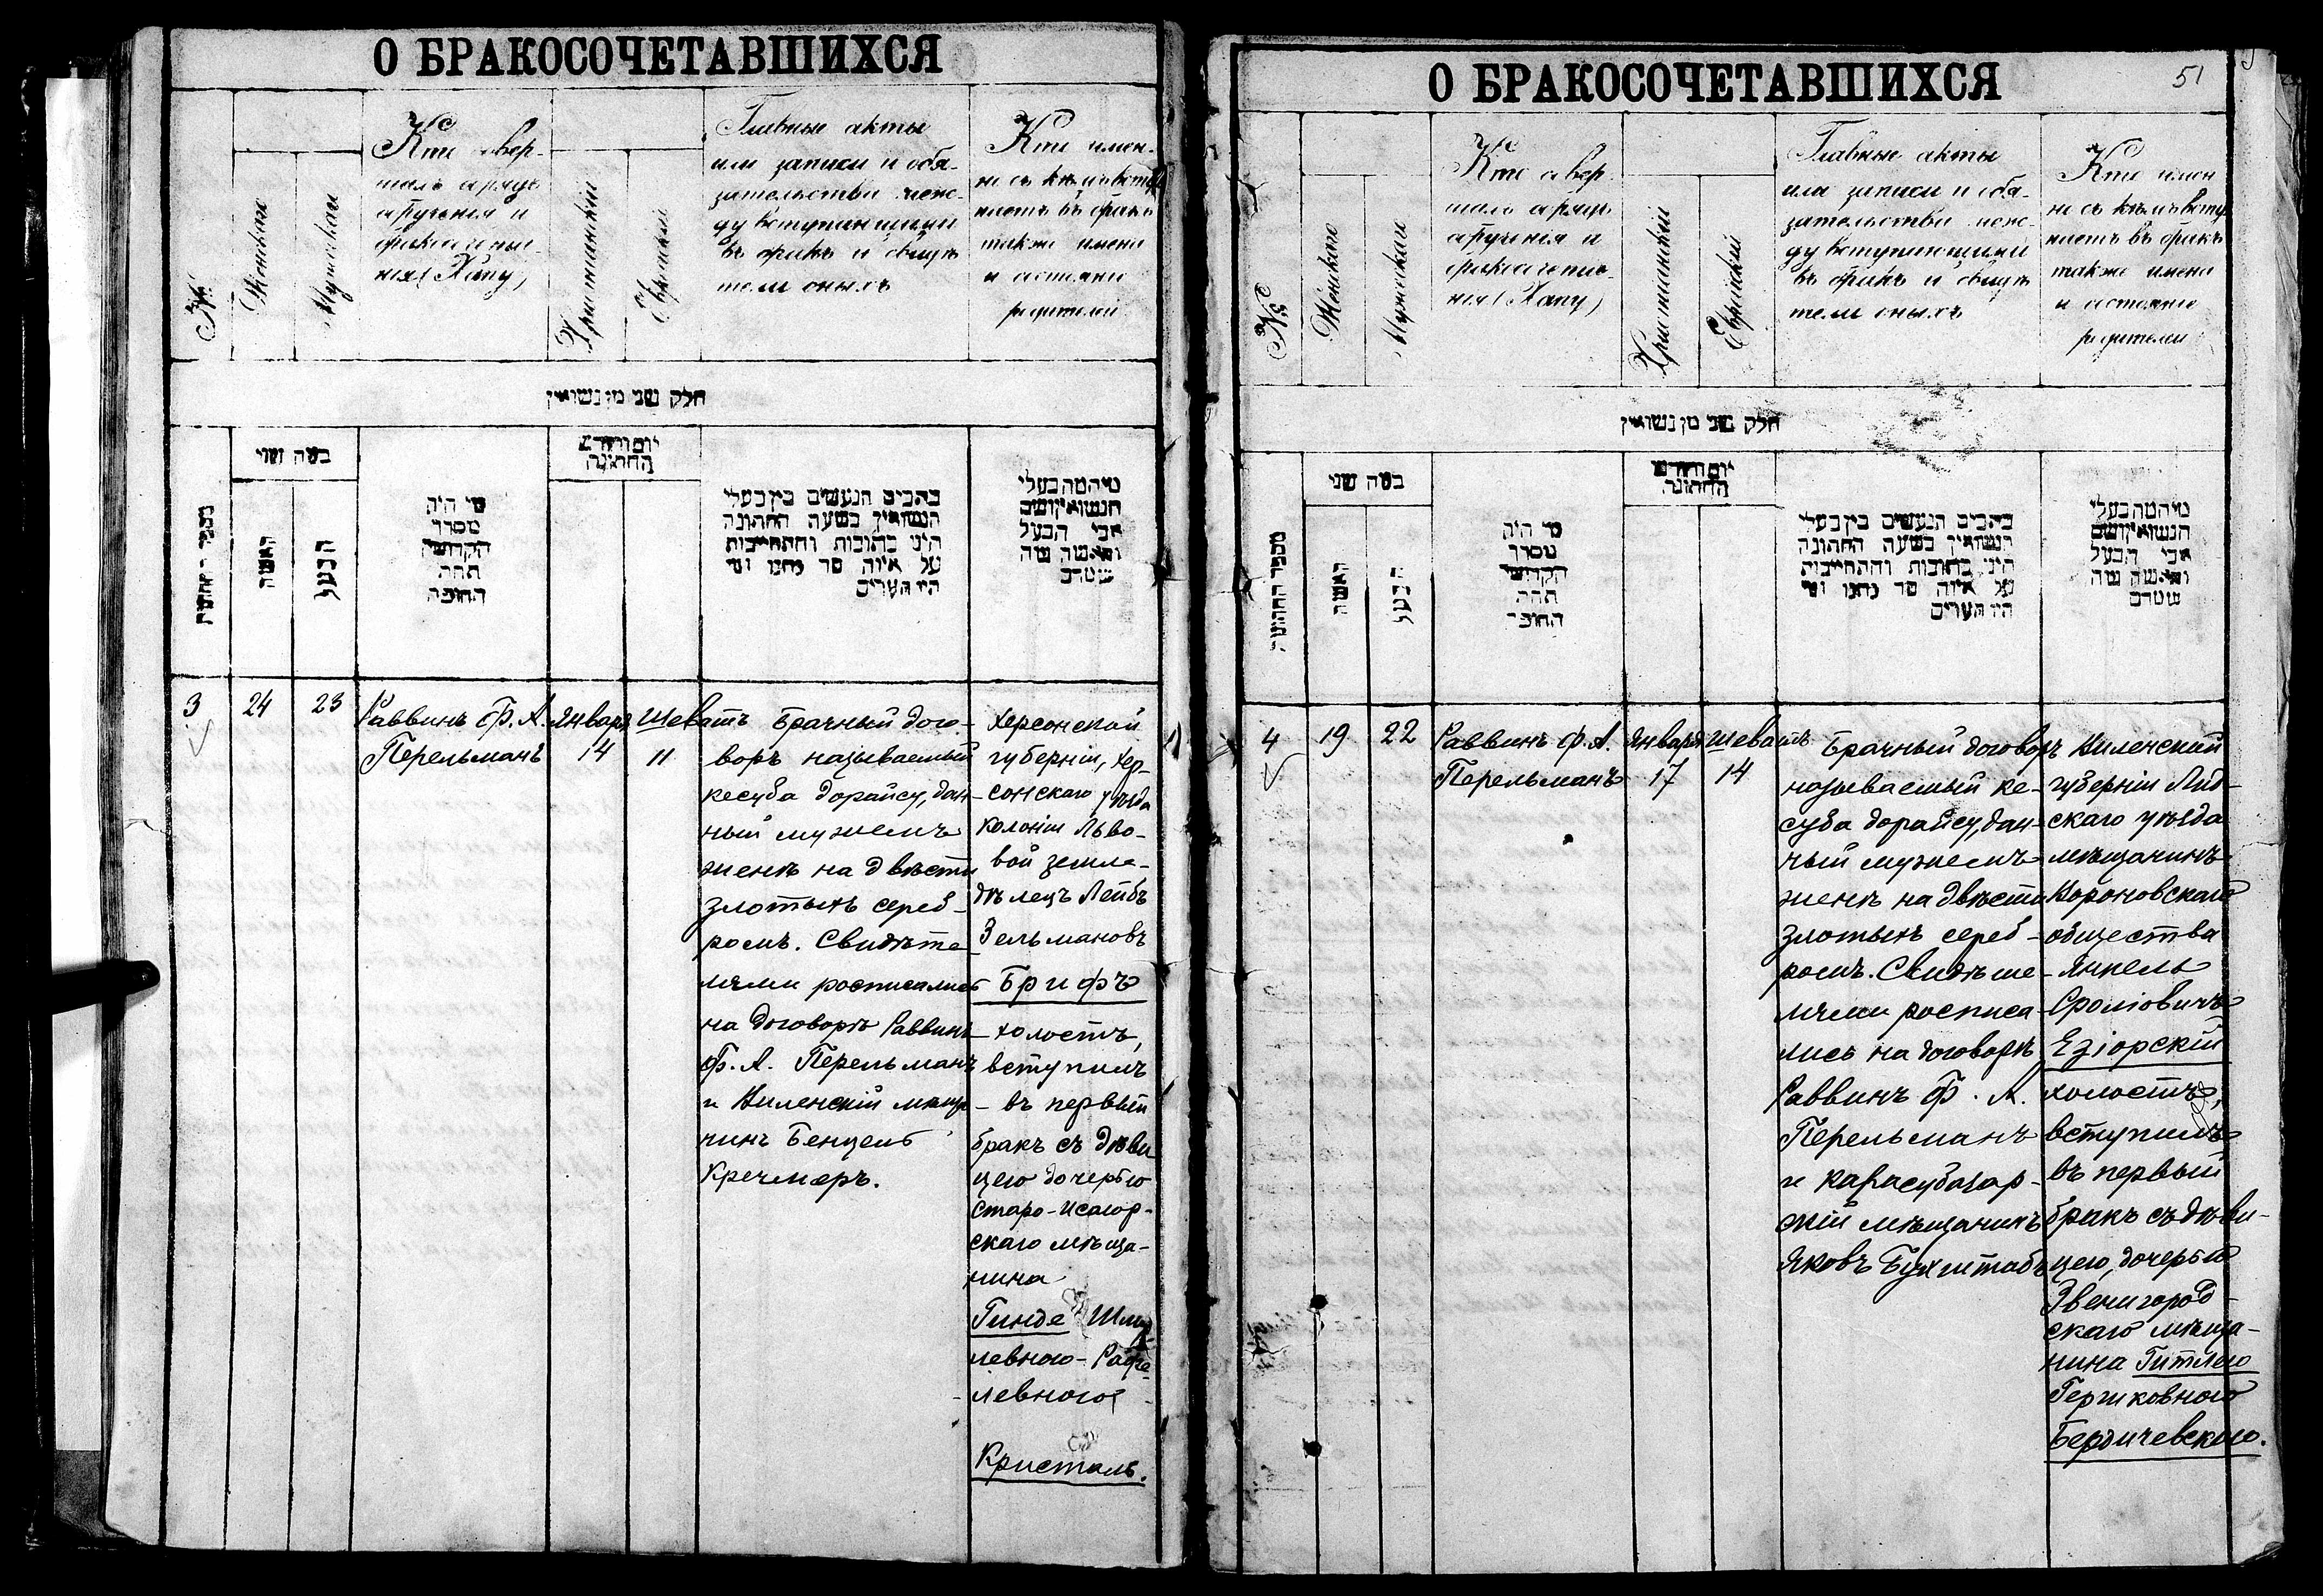 О БРАКОСОЧЕТАВШИХСЯ
№
Женскаго
Мужеская
Кто совер-
шалъ обрядъ
обрученія и
бракосочета-
нія (Хупу)
Христіанскій
Еврейскій
Главные акты
или записи и обя-
зательства меж-
ду вступающими
въ бракъ и свидѣ-
тели оныхъ
Кто имен-
но съ кѣмъ всту
паетъ въ бракъ
также имена
и состояніе
родителей
חלק שני מן נשואין
בשה שני
האשה
הבעל
מי היה
מסדר
תחת
החופה
החתונה
הנעשים בין בעלי
הנשואין בשעה החתונה
היני כתובות וההתחייבות
אבי הבעל
3
24
23
Раввинъ Ф. А.
Перельманъ
Января
14
Шеватъ
11
Брачный дого-
воръ называемый
кесуба дорайсу, дан-
ный мужемъ
женѣ на двѣсти
злотыхъ сереб-
ромъ. Свидѣте
лями росписались
на договорѣ Раввинъ
Ф. А. Перельманъ
и Виленскій мѣща
нинъ Бенцель
Кречмеръ.
Херсонской
губерніи, Хер-
сонскаго уѣзда
колоніи Льво-
вой земле-
дѣлецъ Лейбъ
Зельмановъ
Брифъ
холостъ,
вступилъ
въ первый
бракъ съ дѣви
цею дочерью
Старо-
скаго мѣща-
нина
Гинде Шму
левною-Рафе-
левною
Кристаль.
О БРАКОСОЧЕТАВШИХСЯ
51
№
Женскаго
Мужескаго
Кто совер-
шалъ обрядъ
обрученія и
бракосочета-
нія (Хупу)
Христіанскій
Еврейскій
Главные акты
или записи и обя-
зательства меж-
ду вступающими
въ бракъ и свидѣ
тели оныхъ
Кто имен
но съ кѣмъ всту
паетъ въ бракъ
также имена
и состояніе
родителей
חלק שני מן נשואין
בשה שני
האשה
הבעל
מי היה
מסדר
תחת
החופה
החתונה
הנעשים בין בעלי
הנשואין בשעה החתונה
היני כתובות וההתחייבות
אבי הבעל
4
19
22
Раввинъ Ф. А.
Перельманъ
Января
17
Шеватъ
14
Брачный договоръ
называемый ке-
суба дорайсу, дан-
ный мужемъ
женѣ на двѣсти
злотыхъ сереб-
ромъ. Свидѣте-
лями росписа-
лись на договорѣ
Раввинъ Ф. А.
Перельманъ
и Карасубазар-
скій мѣщанинъ
Яковъ Бухштабъ
Виленской
губерніи Лид-
скаго уѣзда
мѣщанинъ
Вороновскаго
общества
Янкель
Сролiовичъ
Езіорскій
холостъ,
вступилъ
въ первый
бракъ съ дѣви-
цею, дочерью
Звенигород-
скаго мѣща-
нина Гитлею
Гершковною
Бердичевскою.